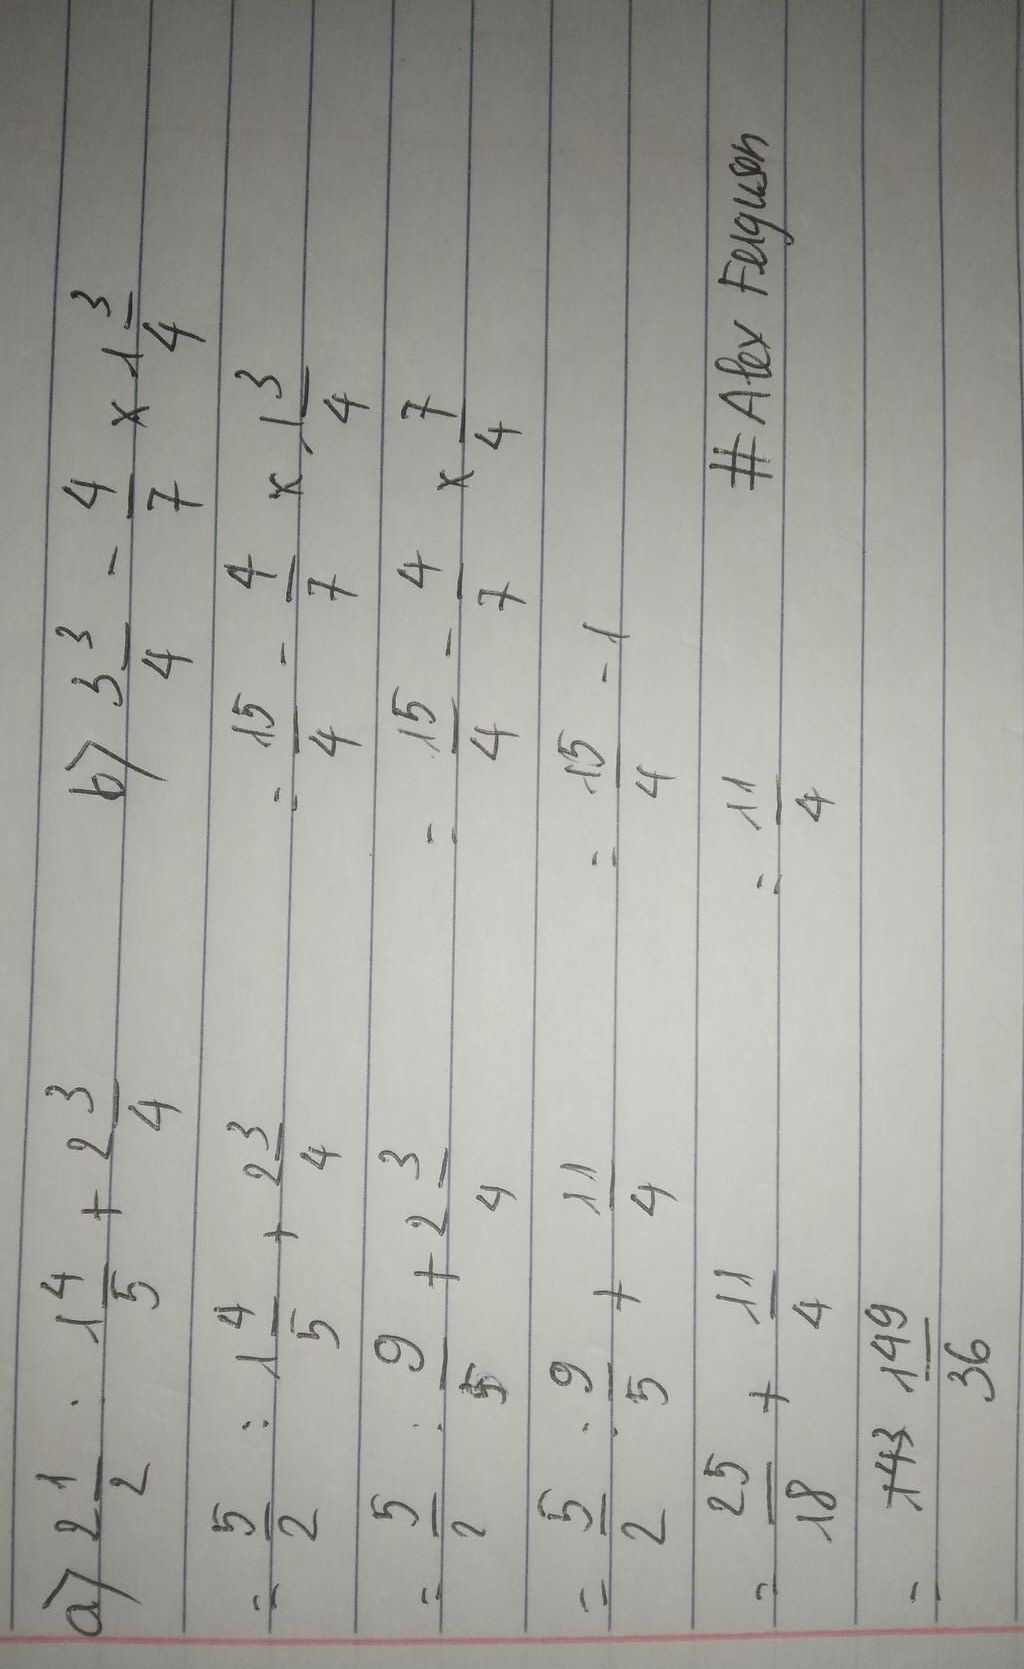 a) 2 1/2 : 1 4/5 + 2 3/4
= 5/2 : 1 4/5 + 2 3/4
= 5/2 : 9/5 + 2 3/4
= 5/2 : 9/5 + 11/4
= 25/18 + 11/4
= 149/36
b) 3 3/4 - 4/7 x 1 3/4
= 15/4 - 4/7 x 1 3/4
= 15/4 - 4/7 x 7/4
= 15/4 - 1
= 11/4
# Alex Ferguson